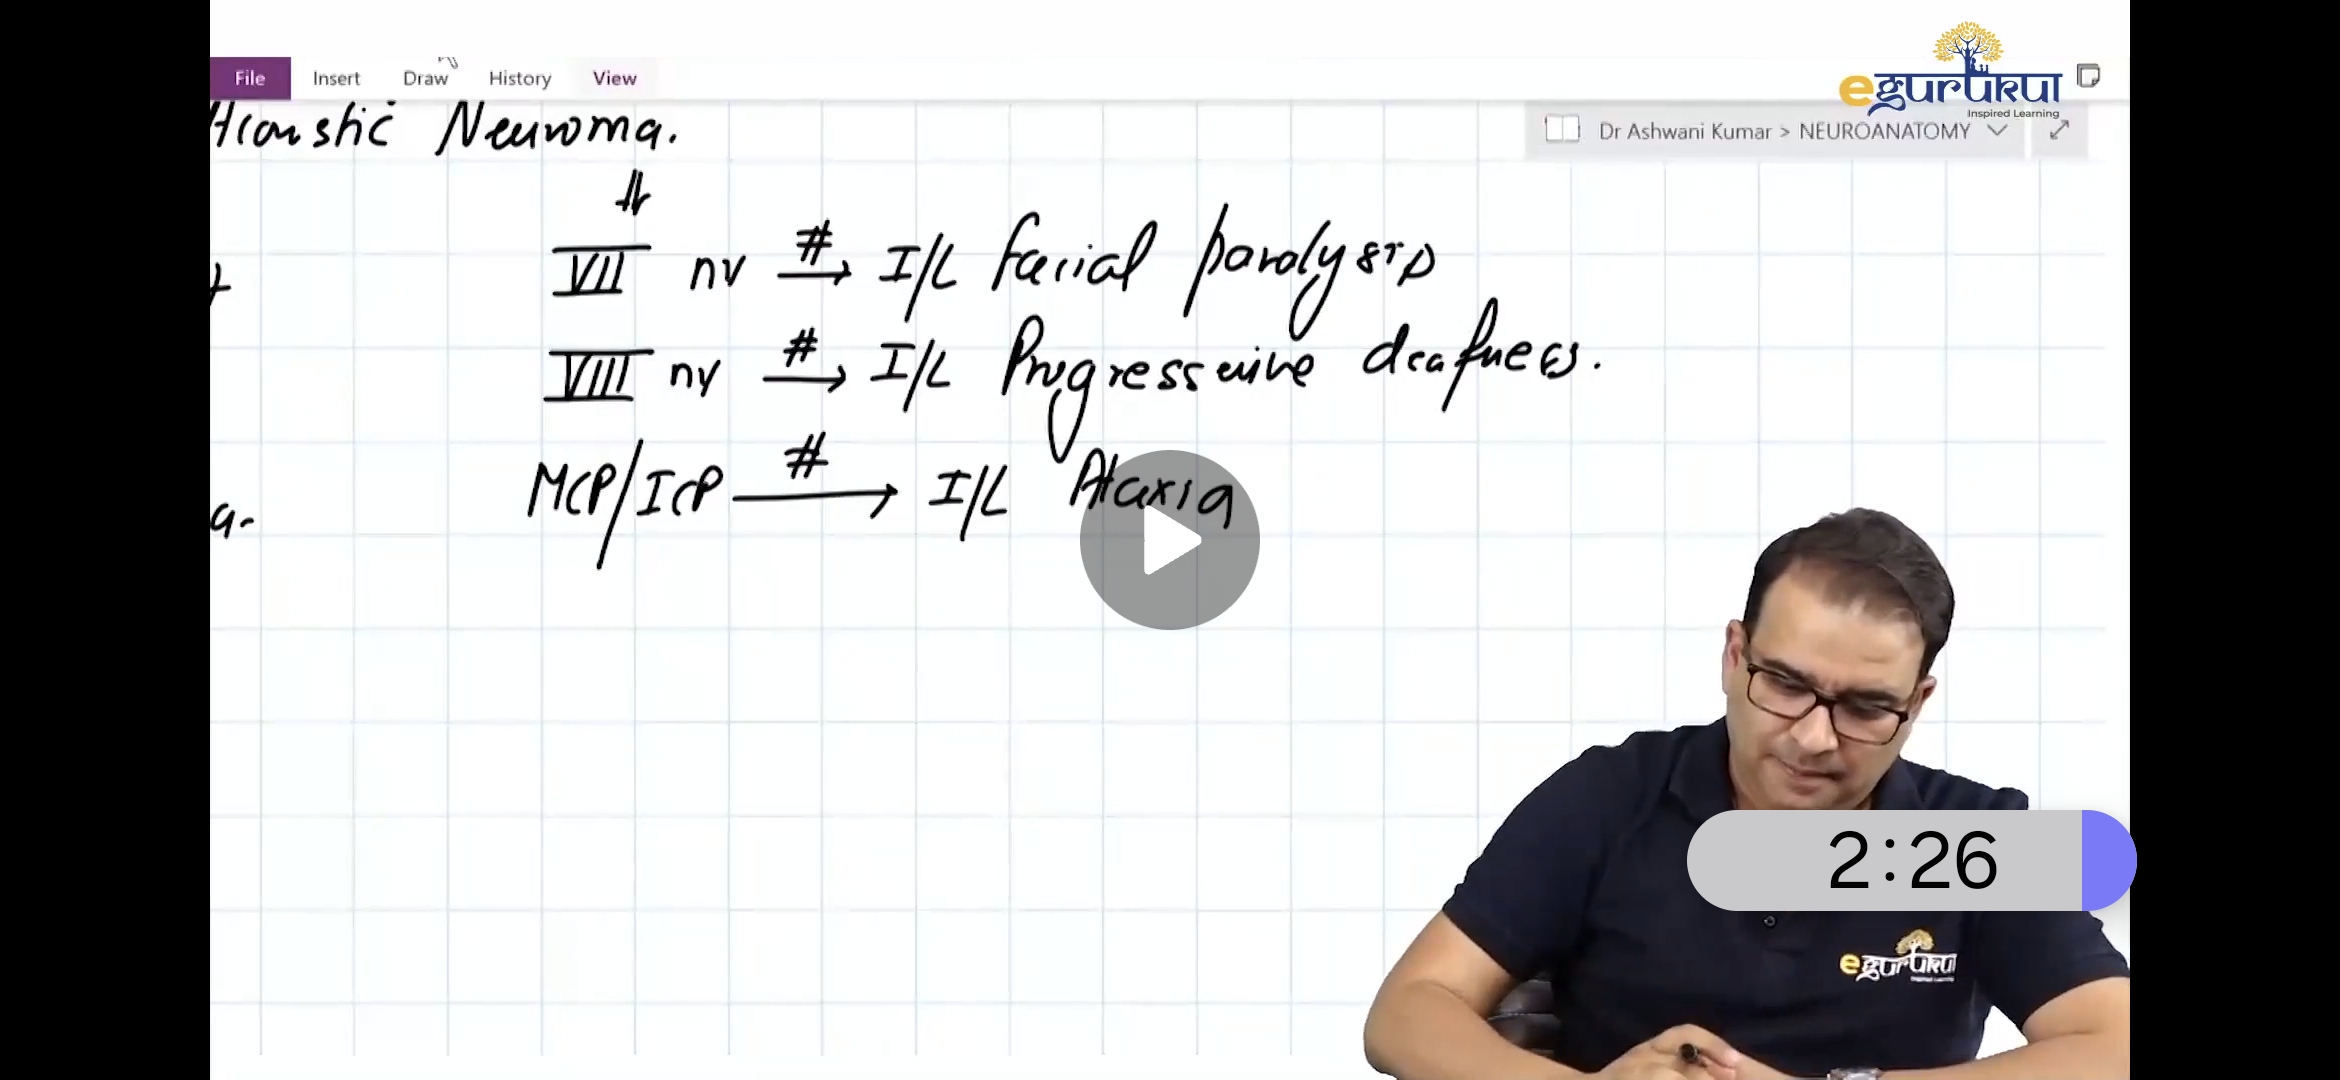 File Insert Draw History View
egurukul
Inspired Learning
Dr Ashwani Kumar > NEUROANATOMY
Acoustic Neuroma.
VII nv # → I/L facial paralysis
VIII nv # → I/L Progressive deafness.
MCP/ICP # → I/L Ataxia
a.
2:26
egurukul